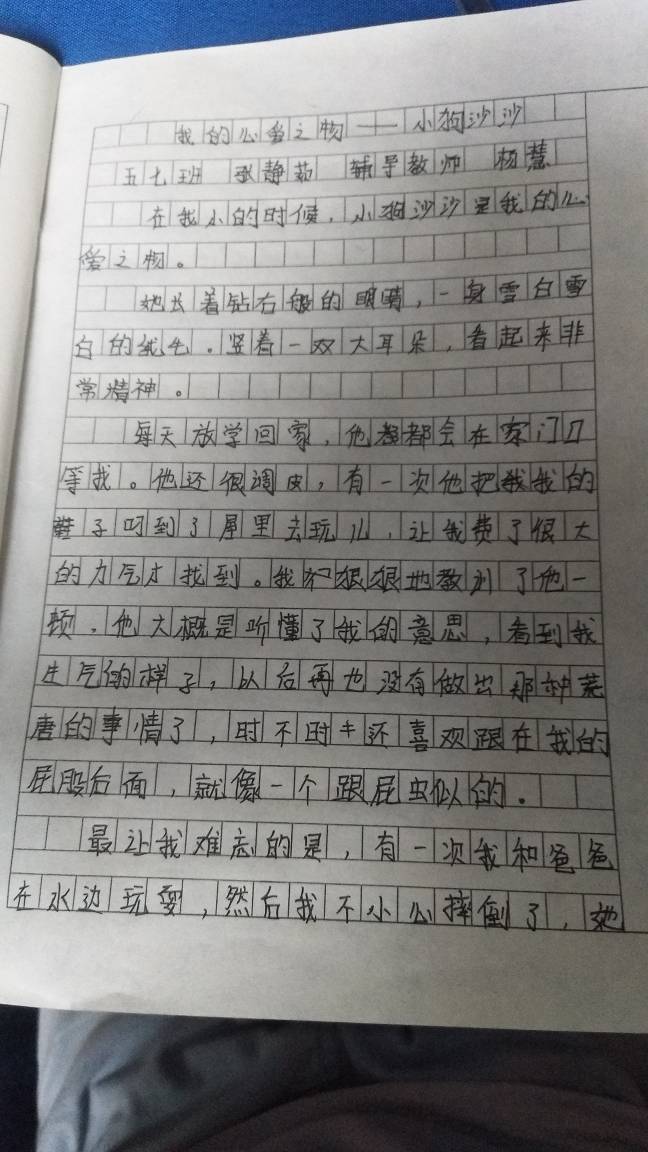 我的心爱之物——小狗沙沙
五七班 张静茹 辅导教师 杨慧
在我小的时候，小狗沙沙是我的心
爱之物。
她长着钻石般的眼睛，一身雪白雪
白的绒毛。竖着一双大耳朵，看起来非
常精神。
每天放学回家，他都会在家门口
等我。他还很调皮，有一次他把我的
鞋子叼到了屋里去玩儿，让我费了很大
的力气才找到。我狠狠地教训了他一
顿，他大概是听懂了我的意思，看到我
生气的样子，以后再也没有做出那种荒
唐的事情了，时不时还喜欢跟在我的
屁股后面，就像一个跟屁虫似的。
最让我难忘的是，有一次我和爸爸
在水边玩耍，然后我不小心摔倒了，她